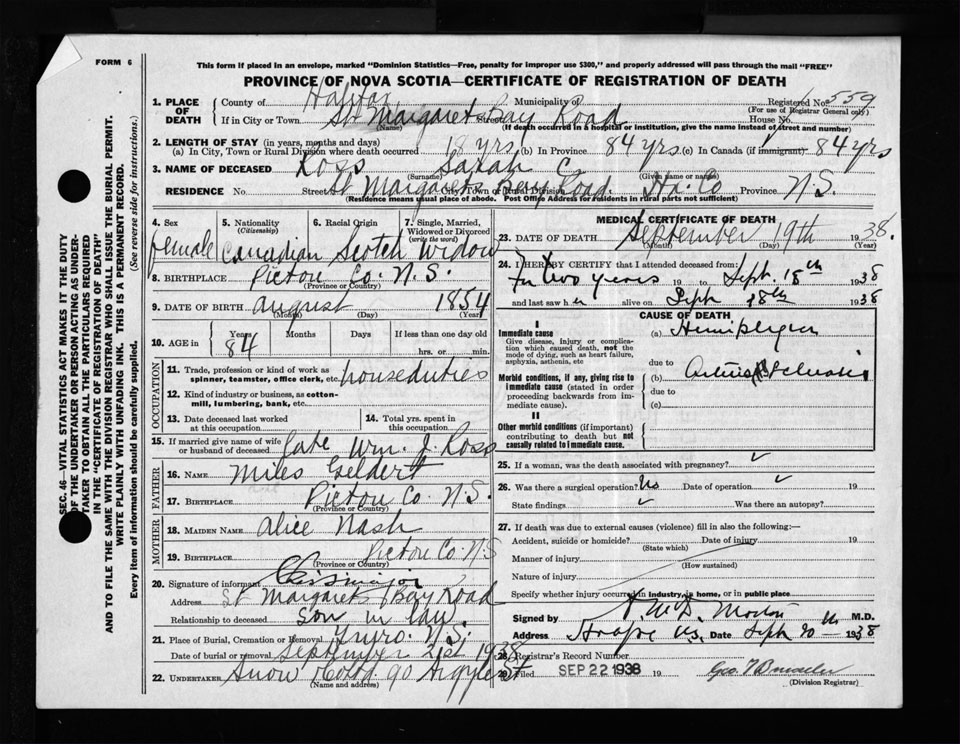 FORM 6
This form if placed in an envelope, marked "Dominion Statistics—Free, penalty for improper use $300," and properly addressed will pass through the mail "FREE"
PROVINCE OF NOVA SCOTIA—CERTIFICATE OF REGISTRATION OF DEATH
1. PLACE OF DEATH County of Halifax Municipality of Registered No. 559
(For use of Registrar General only)
If in City or Town St Margarets Bay Road Street House No.
(Name) (If death occurred in a hospital or institution, give the name instead of street and number)
2. LENGTH OF STAY (in years, months and days)
(a) In City, Town or Rural Division where death occurred 18 yrs. (b) In Province 84 yrs. (c) In Canada (if immigrant) 84 yrs
3. NAME OF DECEASED Ross Sarah C.
(Surname) (Given name or names)
RESIDENCE No. Street St Margarets Bay Road. City, Town or Rural Division Hx. Co Province N.S.
(Residence means usual place of abode. Post Office Address for residents in rural parts not sufficient)
SEC. 46—VITAL STATISTICS ACT MAKES IT THE DUTY
OF THE UNDERTAKER OR PERSON ACTING AS UNDER-
TAKER TO OBTAIN ALL THE PARTICULARS REQUIRED
IN THE "CERTIFICATE OF REGISTRATION OF DEATH"
AND TO FILE THE SAME WITH THE DIVISION REGISTRAR WHO SHALL ISSUE THE BURIAL PERMIT.
WRITE PLAINLY WITH UNFADING INK. THIS IS A PERMANENT RECORD.
Every item of information should be carefully supplied. (See reverse side for instructions.)
4. Sex female
5. Nationality (Citizenship) Canadian
6. Racial Origin Scotch
7. Single, Married, Widowed or Divorced (write the word) Widow
8. BIRTHPLACE Pictou Co. N.S.
(Province or Country)
9. DATE OF BIRTH August 1854
(Month) (Day) (Year)
10. AGE in Years 84 Months Days If less than one day old
hrs. or min.
OCCUPATION
11. Trade, profession or kind of work as
spinner, teamster, office clerk, etc. houseduties
12. Kind of industry or business, as cotton-
mill, lumbering, bank, etc.
13. Date deceased last worked
at this occupation
14. Total yrs. spent in
this occupation
15. If married give name of wife
or husband of deceased late Wm. J. Ross
FATHER
16. NAME Miles Geldert
17. BIRTHPLACE Pictou Co. N.S.
(Province or Country)
MOTHER
18. MAIDEN NAME Alice Nash
19. BIRTHPLACE Pictou Co. N.S
(Province or Country)
20. Signature of informant
Address St Margarets Bay Road
Relationship to deceased son in law
21. Place of Burial, Cremation or Removal Truro. N.S.
Date of burial or removal September 21st 1938
22. UNDERTAKER Snow & Co Ltd. 90 Argyle St
(Name and address)
MEDICAL CERTIFICATE OF DEATH
23. DATE OF DEATH September 19th 1938.
(Month) (Day) (Year)
24. I HEREBY CERTIFY that I attended deceased from:
For two years 19 to Sept. 18th 1938
and last saw her alive on Sept 18th 1938
CAUSE OF DEATH
I
Immediate cause (a) Hemiplegia
Give disease, injury or complica-
tion which caused death, not the
mode of dying, such as heart failure,
asphyxia, asthenia, etc
due to
Morbid conditions, if any, giving rise to
immediate cause (stated in order
proceeding backwards from im-
mediate cause).
(b) Arterio Sclerosis
due to
(c)
II
Other morbid conditions (if important)
contributing to death but not
causally related to immediate cause.
25. If a woman, was the death associated with pregnancy?
26. Was there a surgical operation? No Date of operation 19
State findings Was there an autopsy?
27. If death was due to external causes (violence) fill in also the following:—
Accident, suicide or homicide? Date of injury 19
(State which)
Manner of injury
(How sustained)
Nature of injury
Specify whether injury occurred in industry, in home, or in public place
Signed by M.D.
Address Date Sept 20 1938
28. Registrar's Record Number
29. Filed SEP 22 1938 19
(Division Registrar)